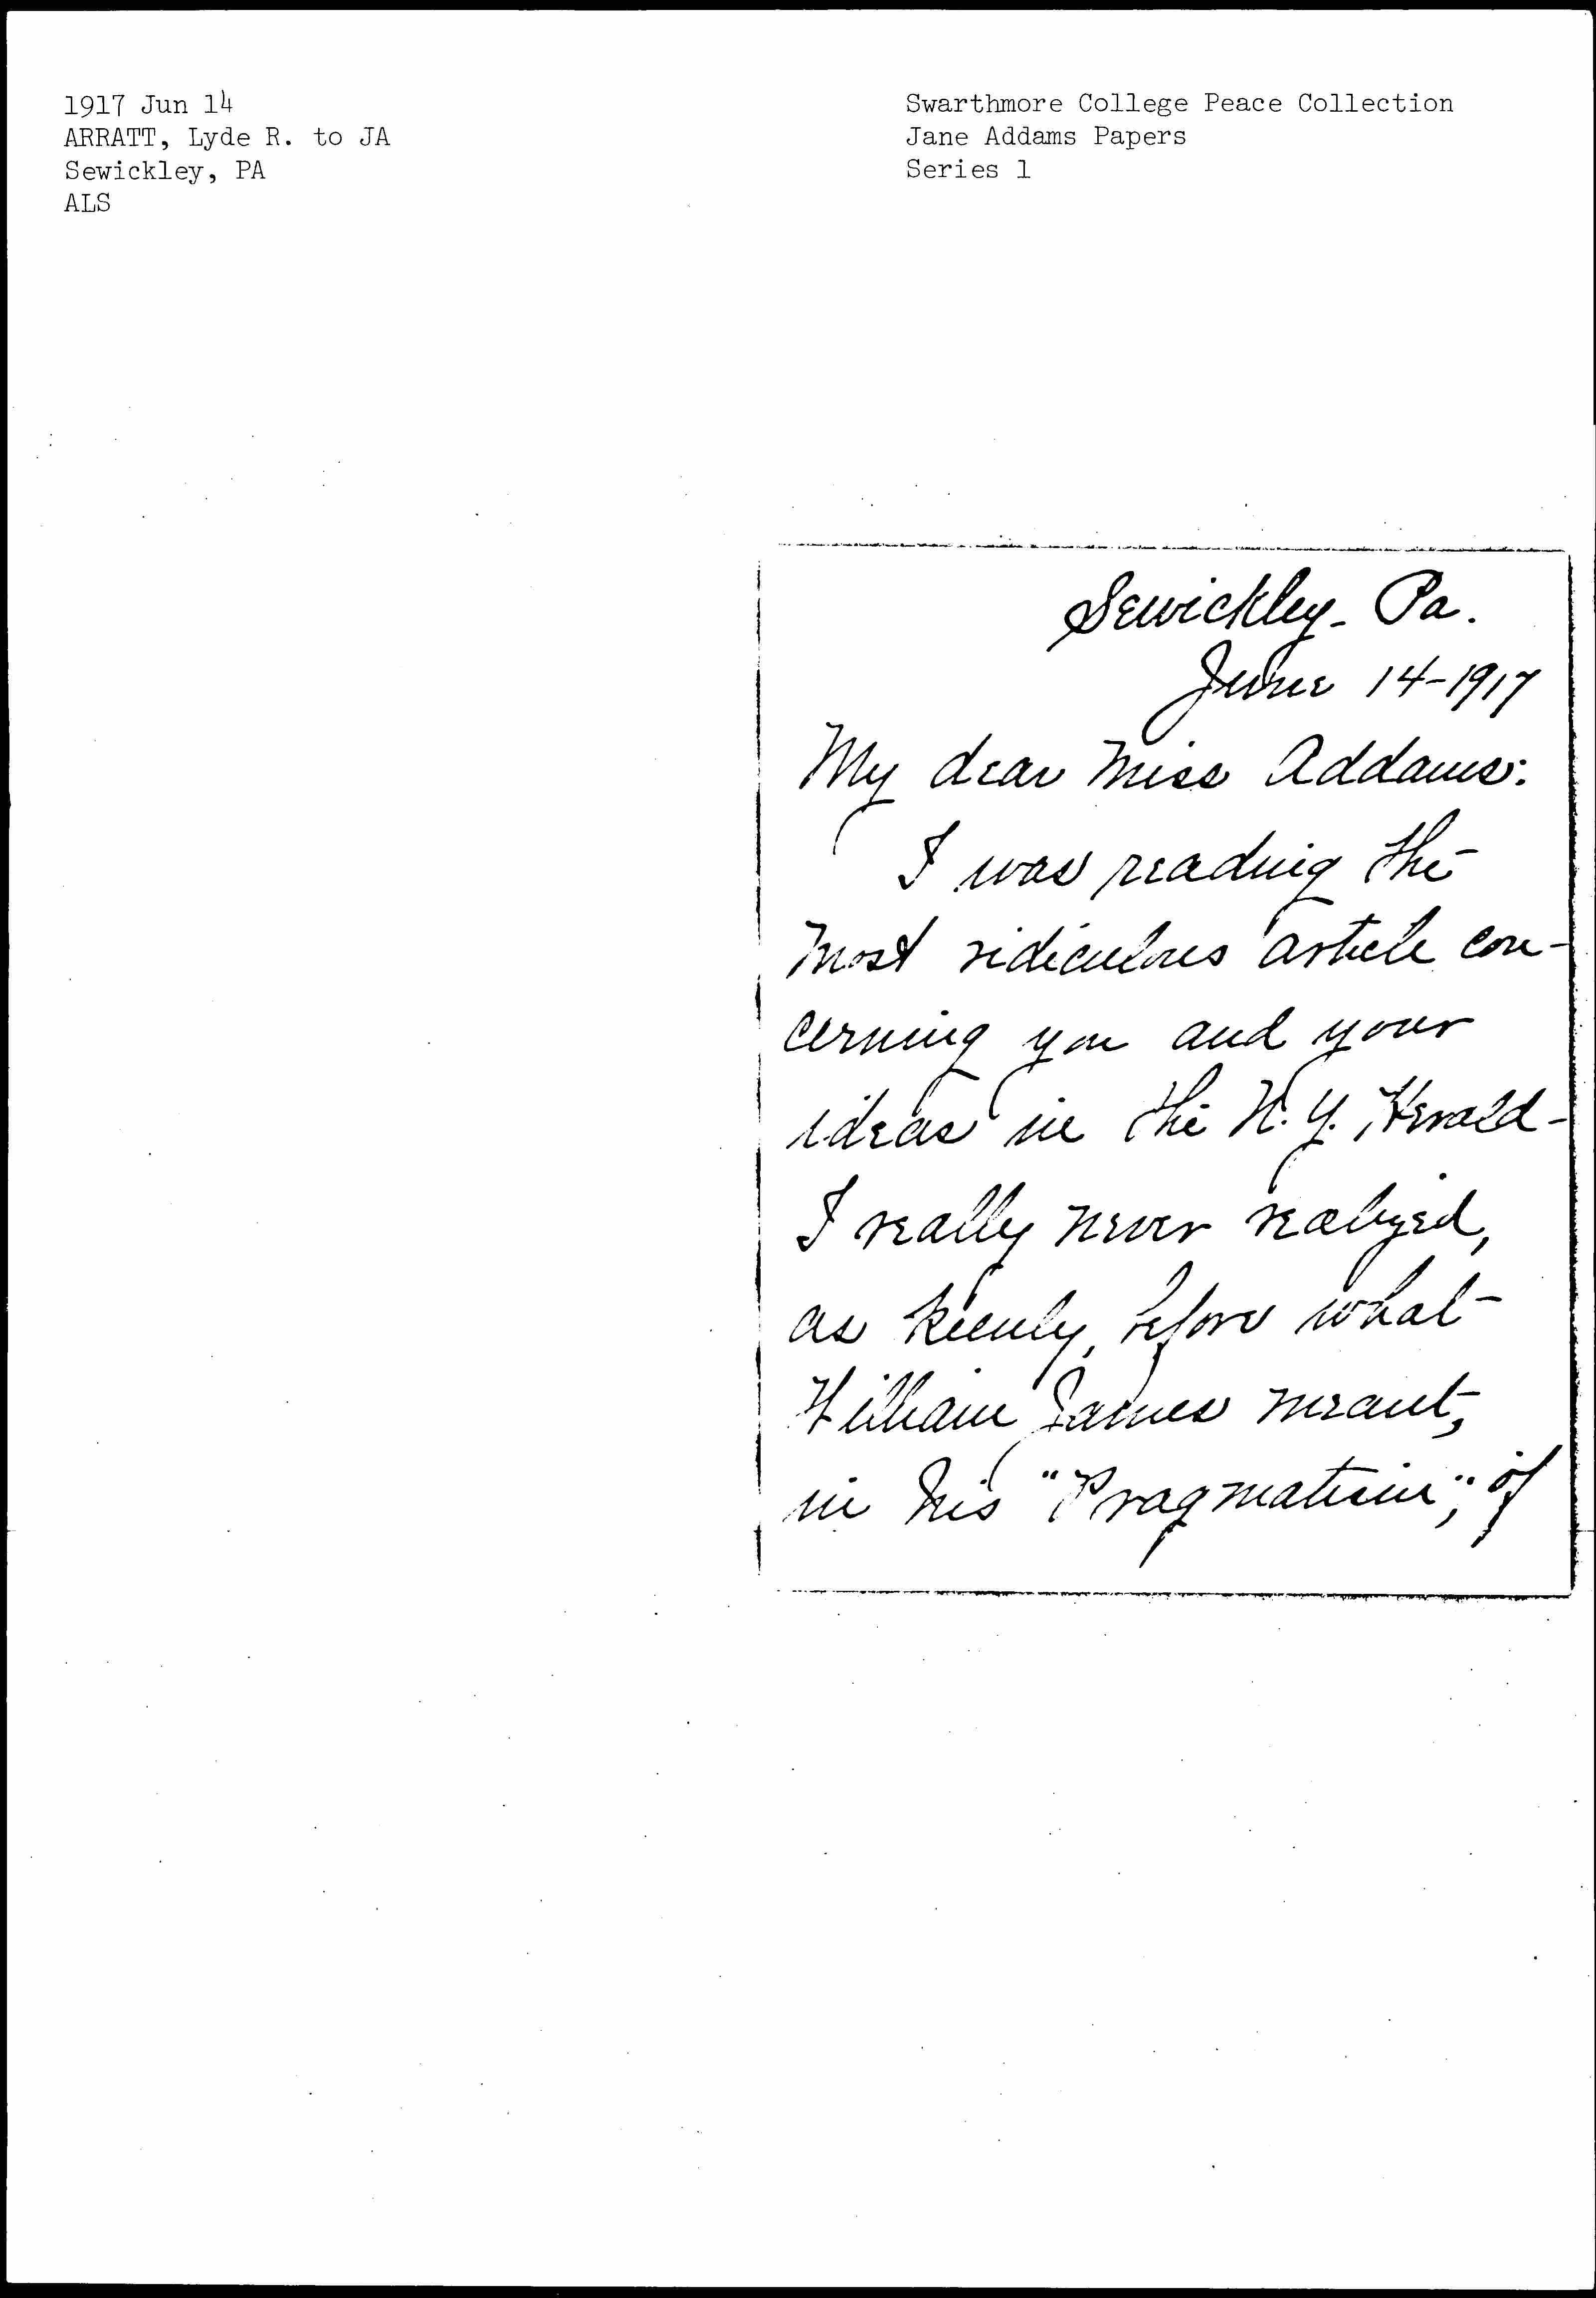 1917 Jun 14
ARRATT, Lyde R. to JA
Sewickley, PA
ALS
Swarthmore College Peace Collection
Jane Addams Papers
Series 1
Sewickley - Pa.
June 14-1917
My dear Miss Addams:
I was reading the
most ridiculous article con-
cerning you and your
ideas in the N.Y. Herald -
I really never realized,
as keenly, before what
William James meant,
in his "Pragmatism", of